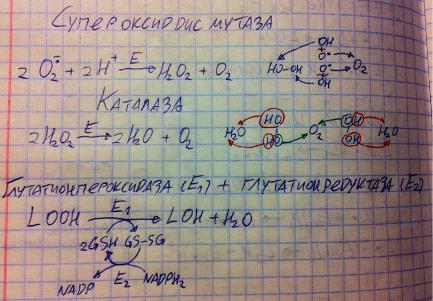 Супероксиддисмутаза
2 O₂•̄ + 2H⁺ —E→ H₂O₂ + O₂
OH
O•
HO-OH O₂
O•
OH
Каталаза
2H₂O₂ —E→ 2H₂O + O₂
HO OH
H₂O O₂ H₂O
HO OH
Глутатионпероксидаза (E₁) + глутатионредуктаза (E₂)
LOOH —E₁→ LOH + H₂O
2GSH GS-SG
NADP E₂ NADPH₂